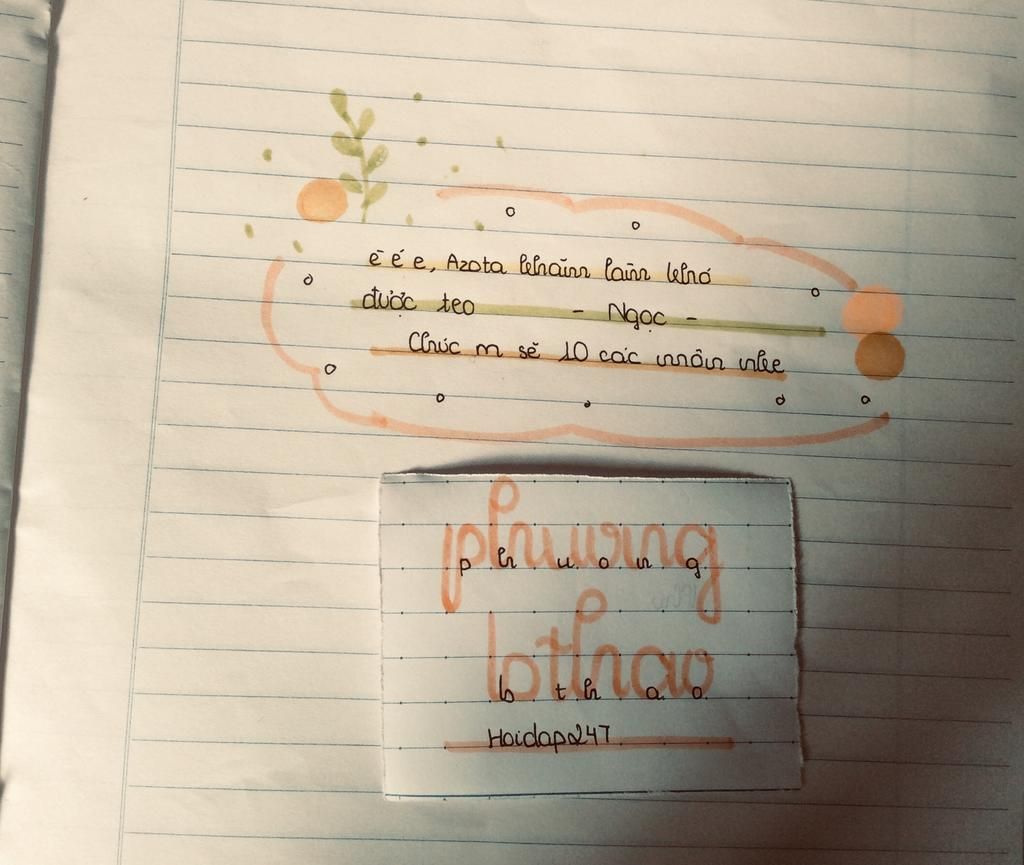 ê é e, Azota làm khó
được teo - Ngọc -
Chúc m sẽ 10 các môn nhe
phuong
p h u o n g
bthao
b t h a o
Hoidap247